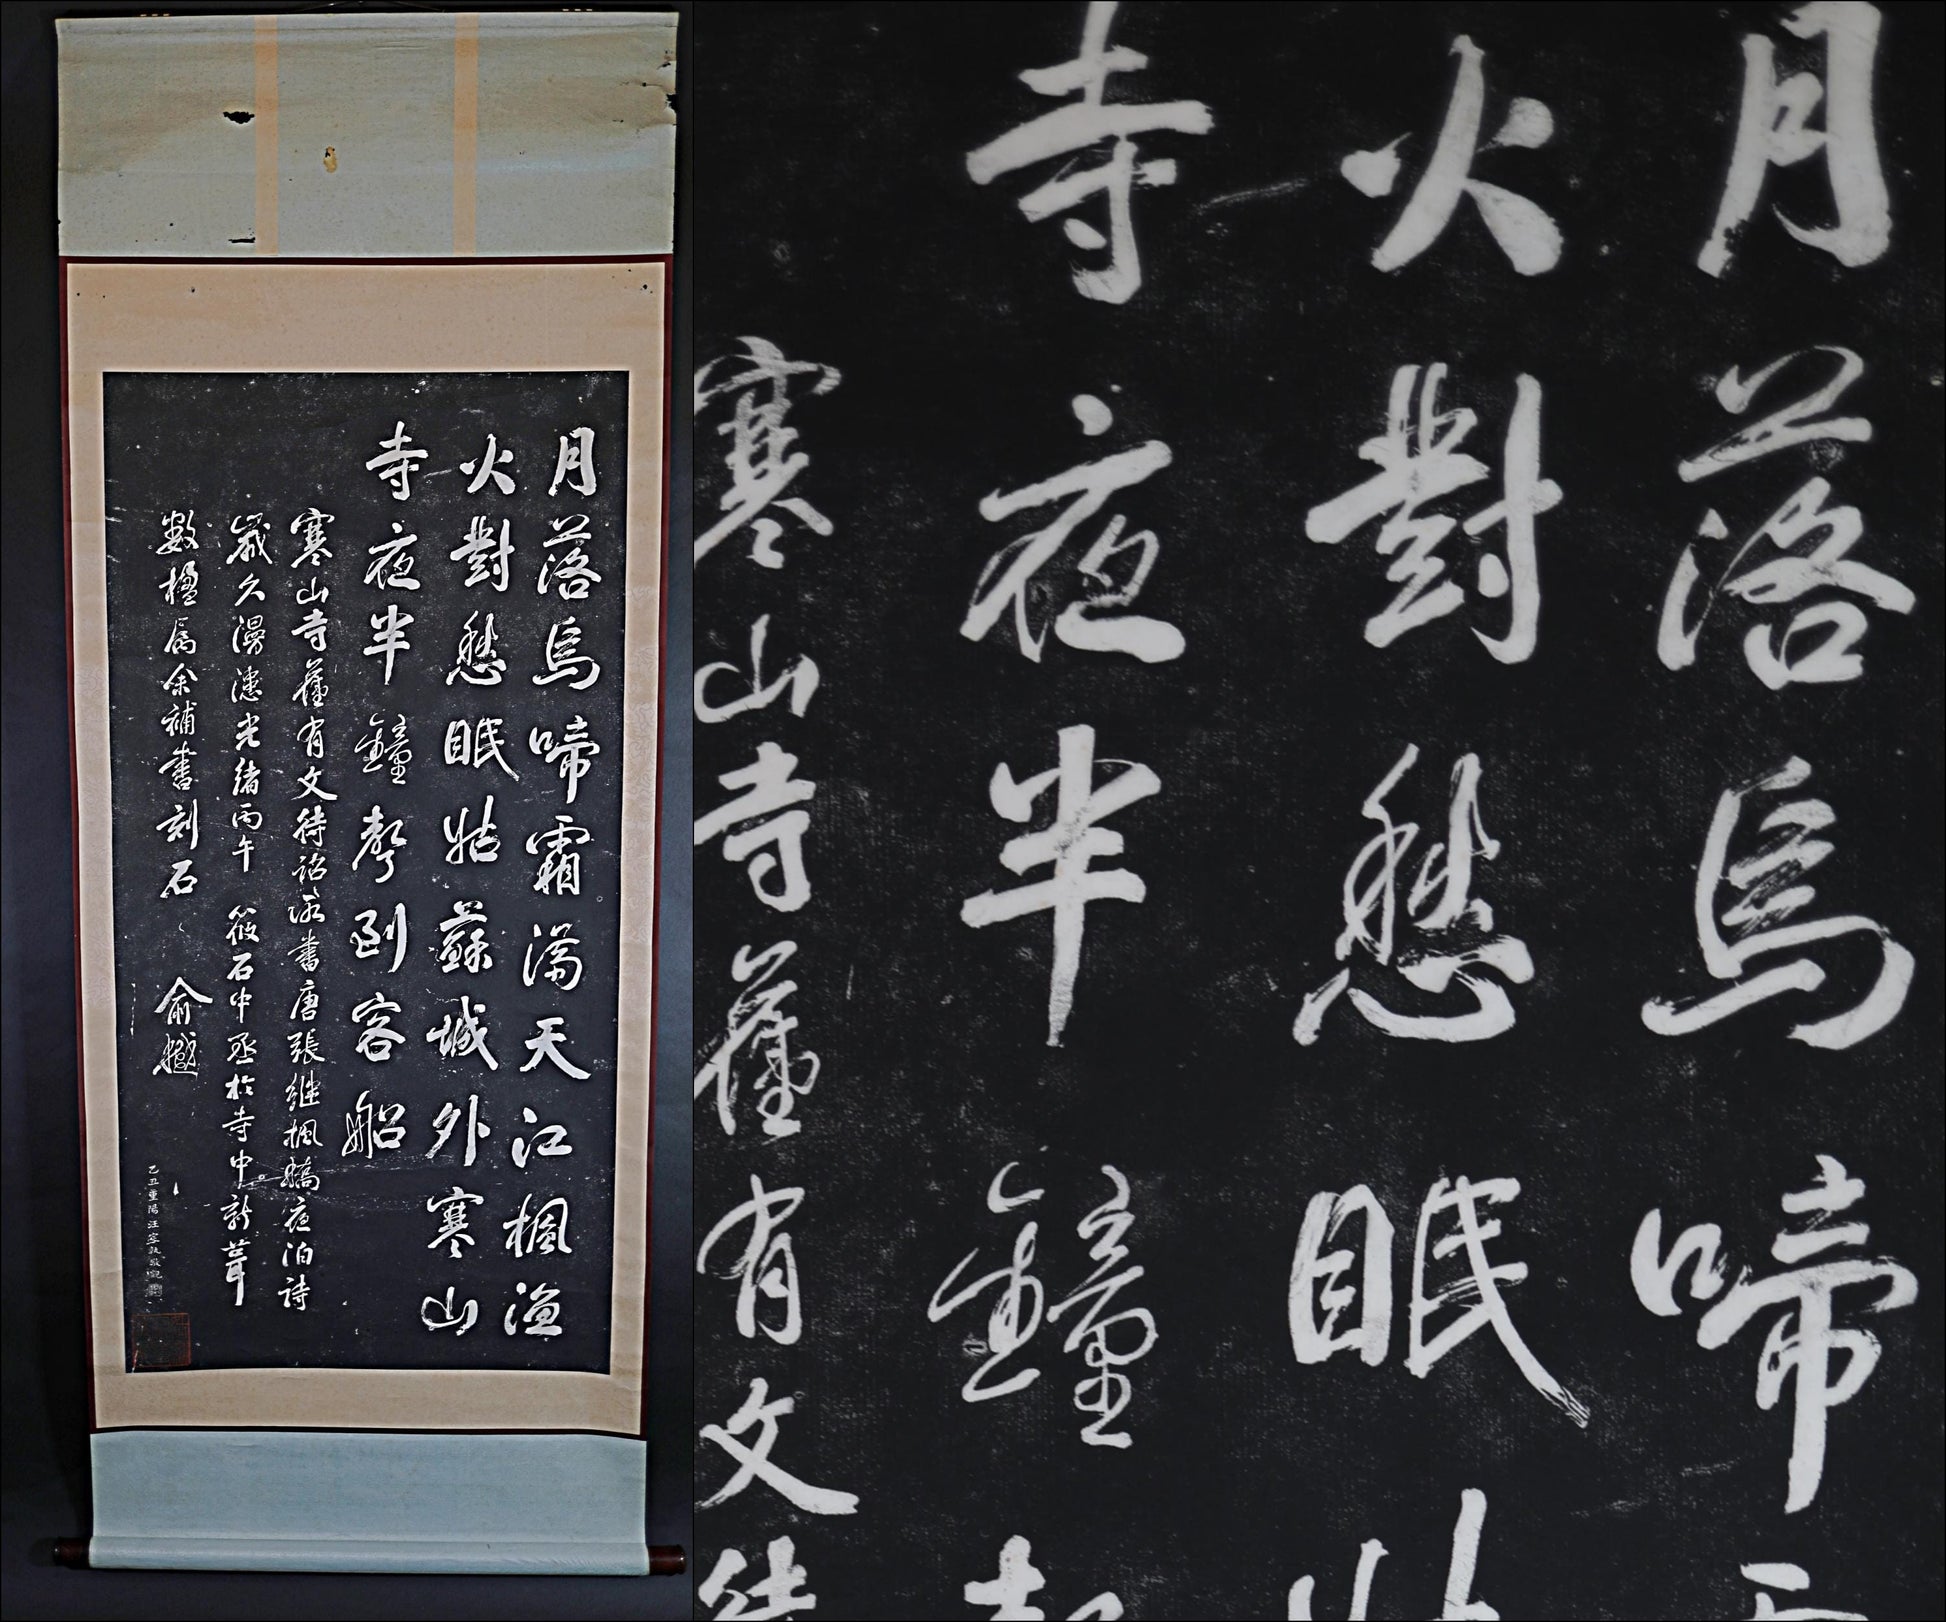 月落烏啼霜滿天江楓漁
火對愁眠姑蘇城外寒山
寺夜半鐘聲到客船
寒山寺舊有文待詔所書唐張繼楓橋夜泊詩
歲久漫漶光緒丙午筱石中丞於寺中新葺
數楹屬余補書刻石
俞樾
乙丑重陽汪
月落烏啼
火對愁眠
寺夜半鐘
寒山寺舊有文待